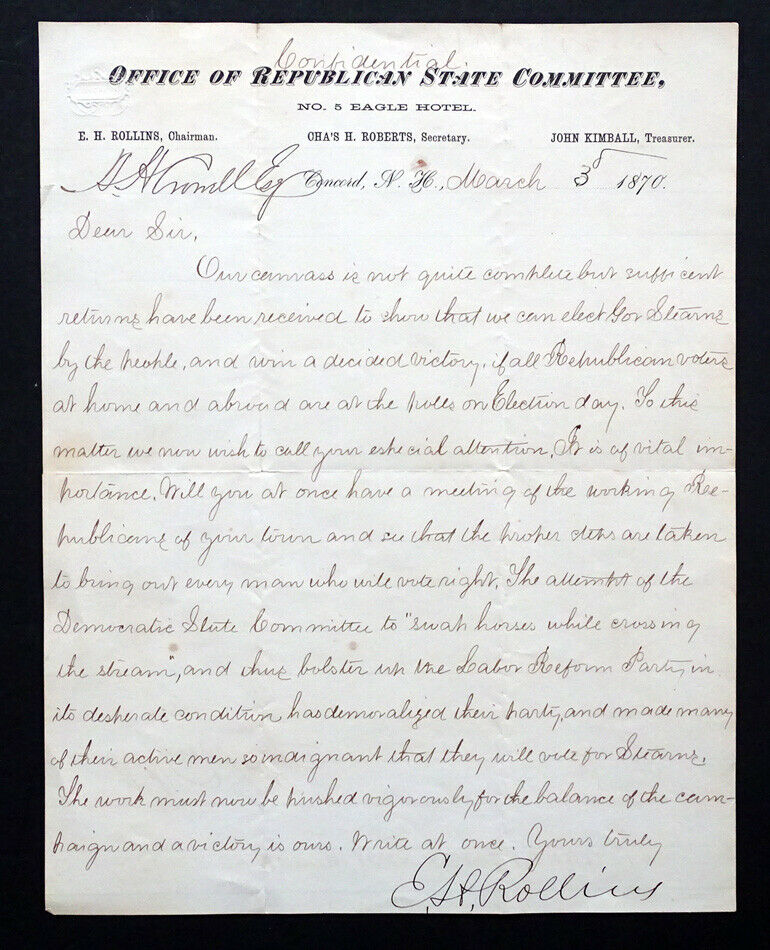 Confidential.
OFFICE OF REPUBLICAN STATE COMMITTEE,
NO. 5 EAGLE HOTEL.
E. H. ROLLINS, Chairman. CHA'S H. ROBERTS, Secretary. JOHN KIMBALL, Treasurer.
Esq Concord, N. H., March 5 1870.
Dear Sir,
Our canvass is not quite complete but sufficent
returns have been received to show that we can elect Gov Stearns
by the people, and win a decided victory, if all Republican voters
at home and abroad are at the polls on Election day. To this
matter we now wish to call your especial attention. It is of vital im-
portance. Will you at once have a meeting of the working Re-
publicans of your town and see that the proper steps are taken
to bring out every man who will vote right. The attempt of the
Democratic State Committee to "swap horses while crossing
the stream", and thus bolster up the Labor Reform Party in
its desperate condition has demoralized their party, and made many
of their active men so indignant that they will vote for Stearns.
The work must now be pushed vigorously for the balance of the cam-
paign and a victory is ours. Write at once. Yours truly
E. H. Rollins